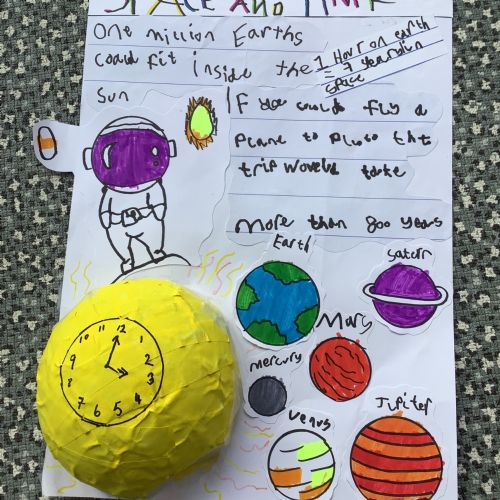 SPACE AND TIME
One mission Earths
coud fit inside the
Sun
1 Hour on earth
= 7 years in
space
If you could fly a
Plane to Pluto tht
trip woveld take
more than 800 years
Earth
Saterr
Mars
mercury
Venus
Jupiter
12
1
2
3
4
5
6
7
8
9
10
11